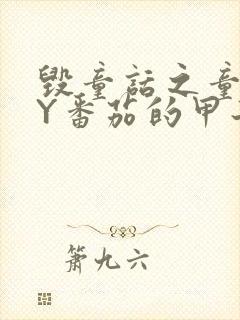 毁童话之童
Y番茄的甲
萧九六